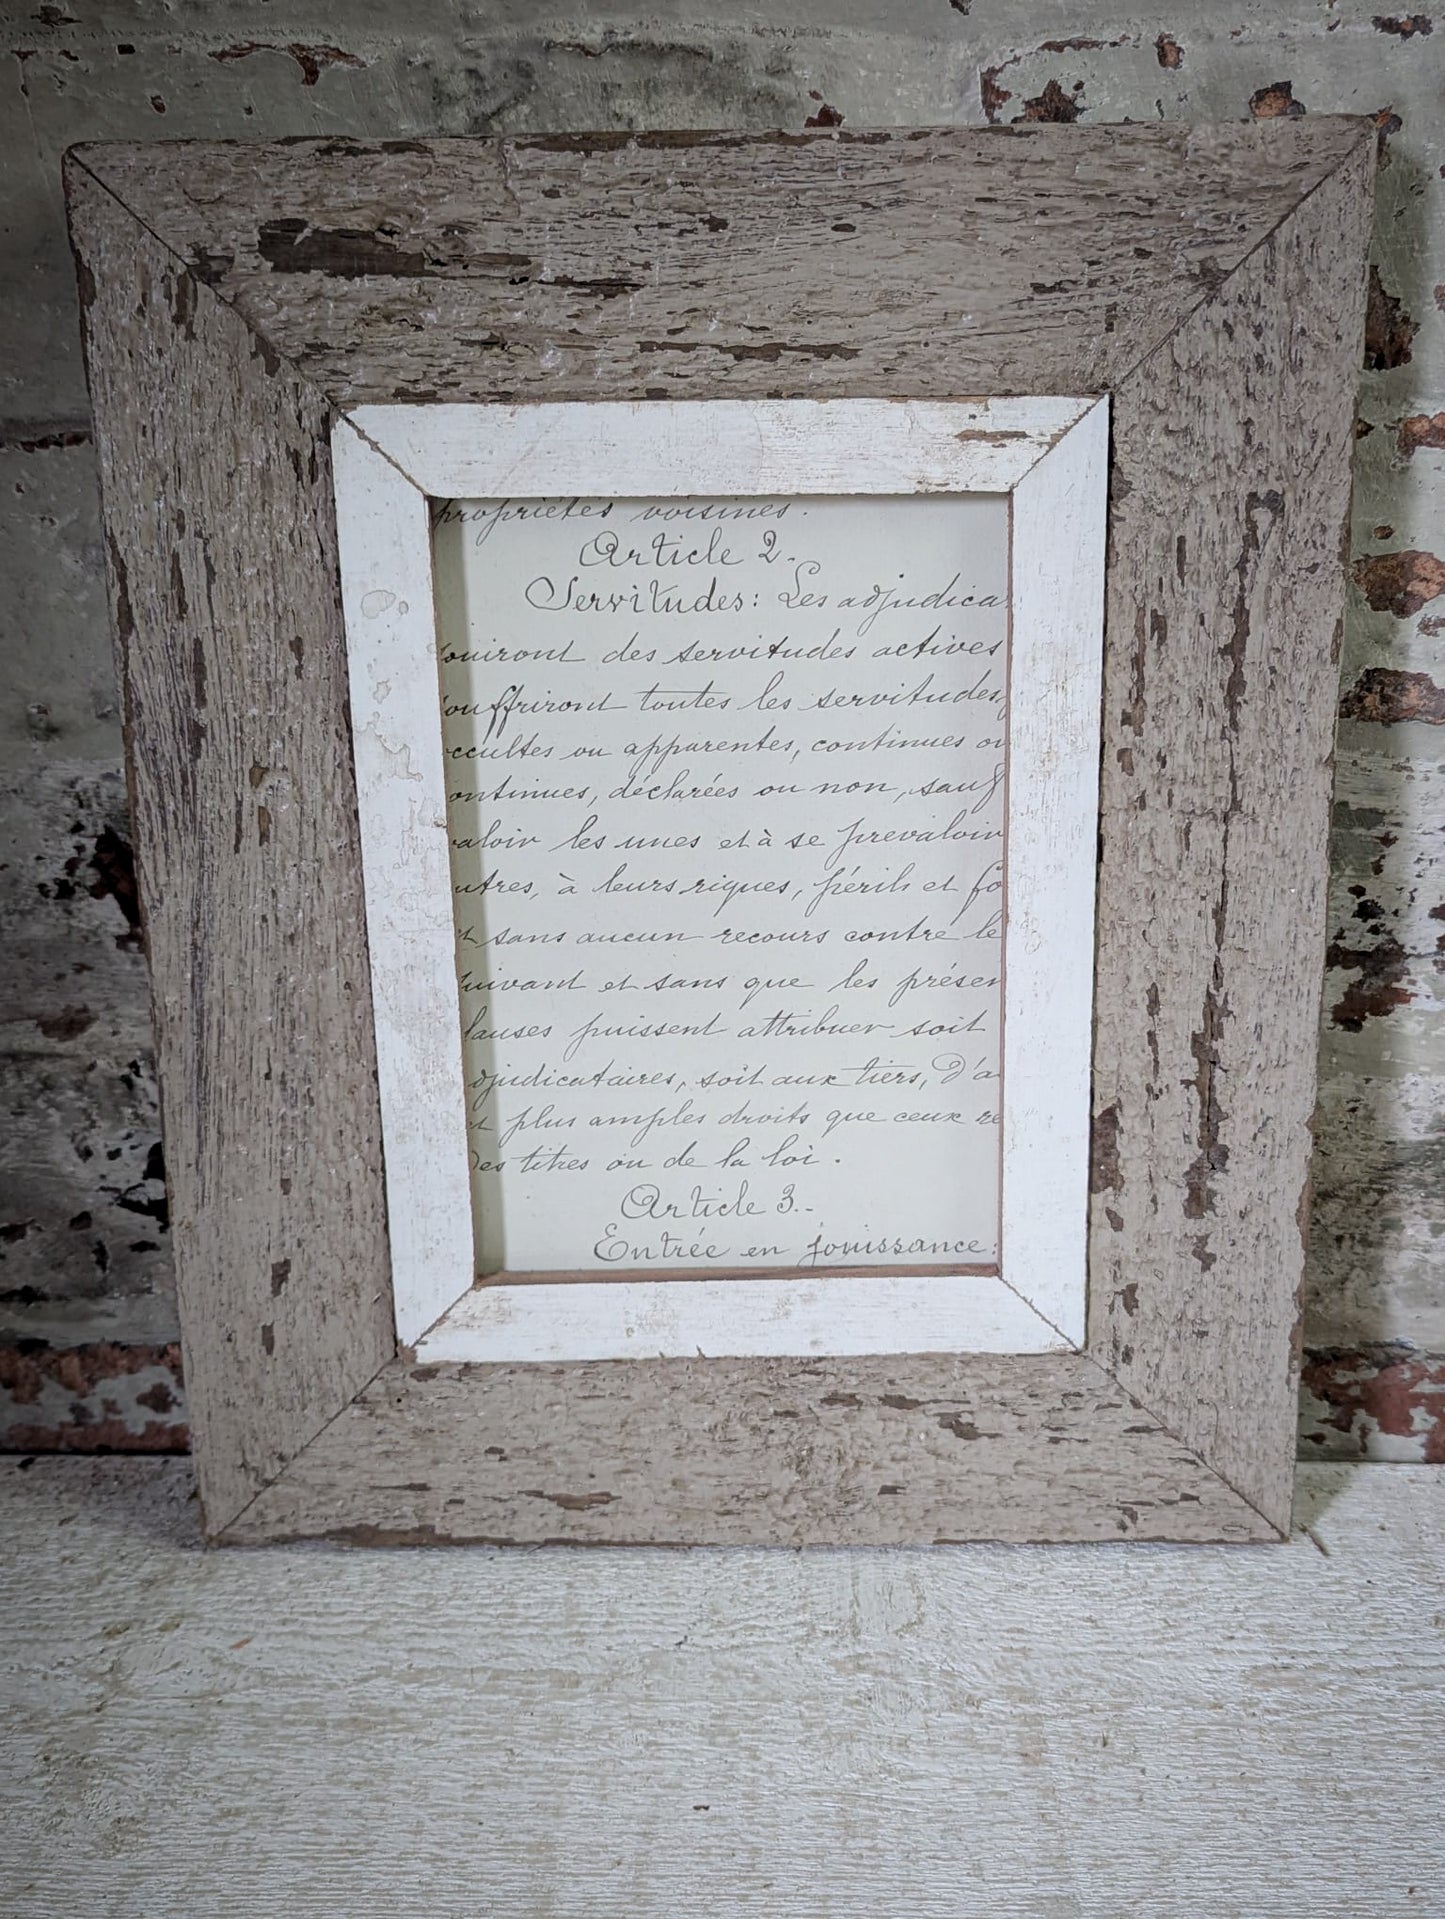 propriétés voisines.
Article 2.
Servitudes: Les adjudica
ouiront des servitudes actives
ouffriront toutes les servitudes,
ccultes ou apparentes, continues ou
ontinues, déclarées ou non, sauf
valoir les unes et à se prevaloir
utres, à leurs riques, périls et fo
et sans aucun recours contre le
uivant et sans que les présen
lauses puissent attribuer soit
djudicataires, soit aux tiers, d'a
et plus amples droits que ceux re
des titres ou de la loi.
Article 3..
Entrée en jouissance: